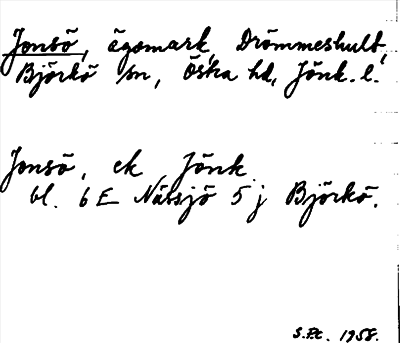 Jonsö, ägomark, Drömmeshult,
Björkö sn, Östra hd, Jönk. l.
Jonsö, ek Jönk
bl. 6 E Nässjö 5 j Björkö.
1958.